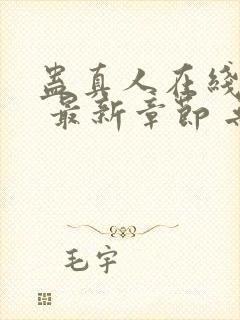 蛊真人在线
最新章节
毛宇